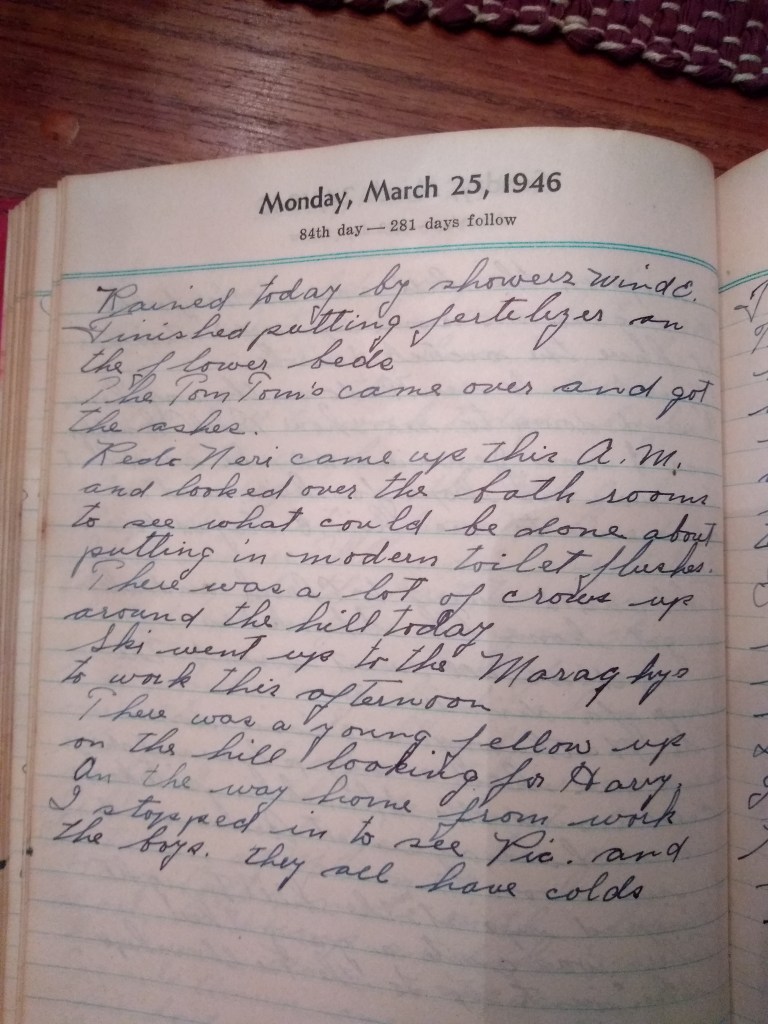 Monday, March 25, 1946
84th day — 281 days follow
Rained today by showers wind E.
Finished putting fertelizer on
the flower beds
The Tom Tom's came over and got
the ashes.
Redo Neri came up this A.M.
and looked over the bath rooms
to see what could be done about
putting in modern toilet flushes.
There was a lot of crows up
around the hill today
Ski went up to the Maraghys
to work this afternoon
There was a young fellow up
on the hill looking for Harry,
On the way home from work
I stopped in to see Pic. and
the boys. they all have colds